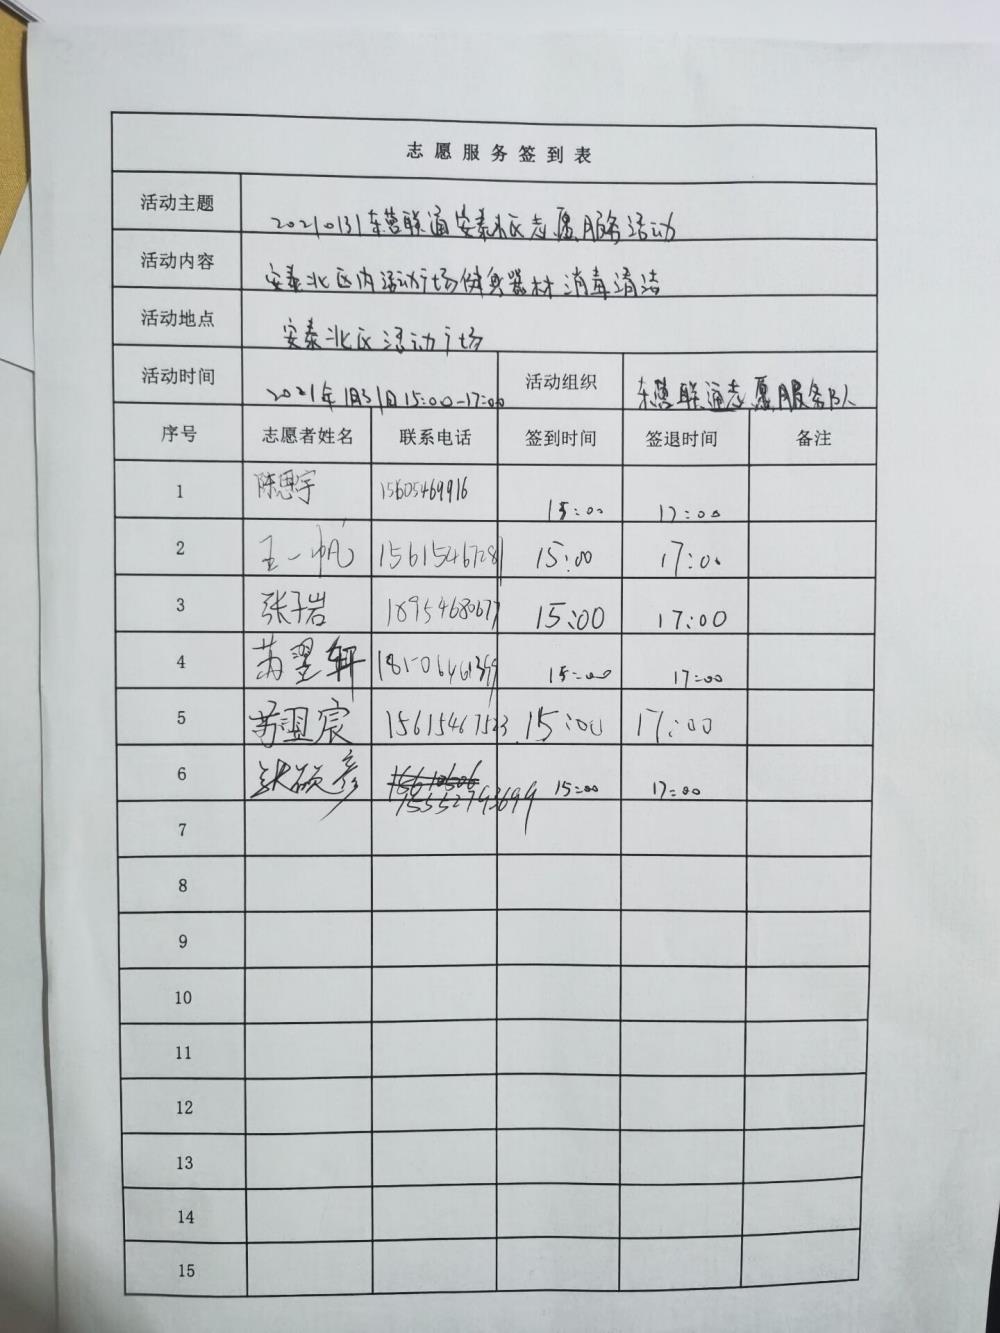 志愿服务签到表
活动主题 20210131东营联通安泰北区志愿服务活动
活动内容 安泰北区内活动广场健身器材消毒清洁
活动地点 安泰北区活动广场
活动时间 2021年1月31日15:00-17:00 活动组织 东营联通志愿服务队
序号 志愿者姓名 联系电话 签到时间 签退时间 备注
1 陈思宇 15605469916 15:00 17:00
2 王一帆 15615467281 15:00 17:00
3 张子岩 18954680677 15:00 17:00
4 苏翌轩 15:00 17:00
5 苏翌宸 15615467523 15:00 17:00
6 张硕彦 15552793699 15:00 17:00
7
8
9
10
11
12
13
14
15